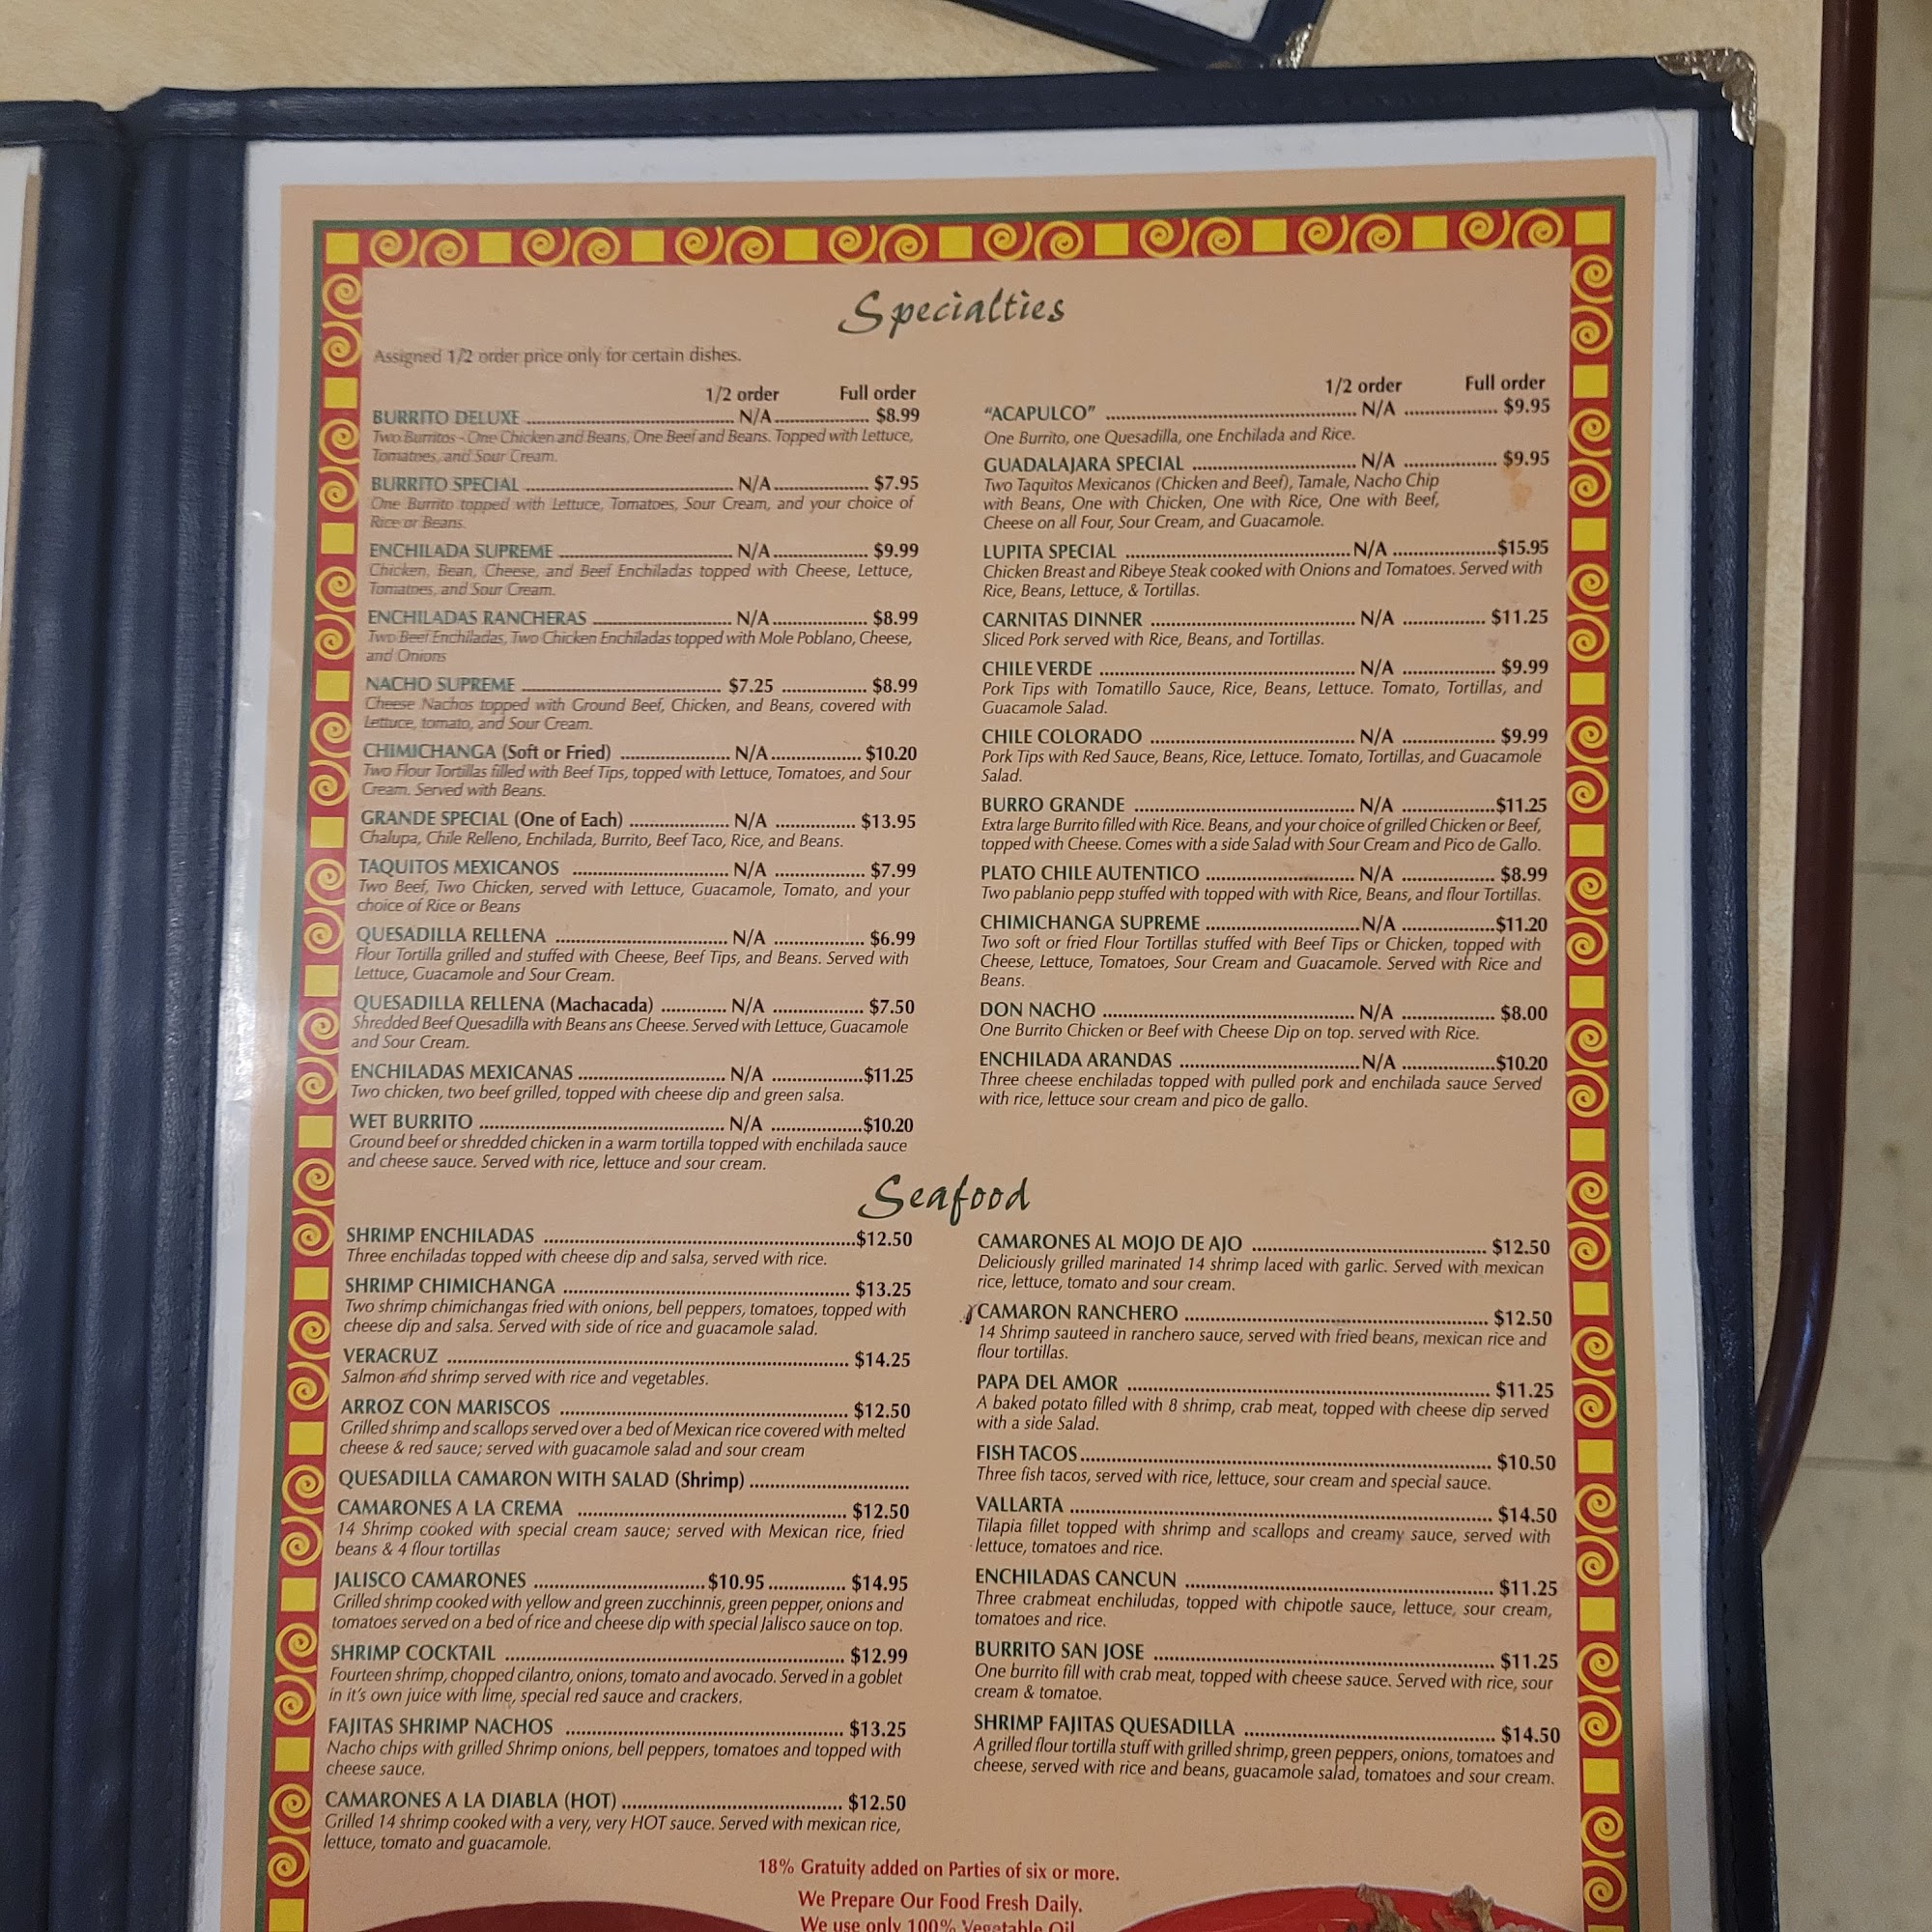 Specialties
Assigned 1/2 order price only for certain dishes.
1/2 order Full order
BURRITO DELUXE ........ N/A ........ $8.99
Two Burritos - One Chicken and Beans, One Beef and Beans. Topped with Lettuce,
Tomatoes, and Sour Cream.
BURRITO SPECIAL ........ N/A ........ $7.95
One Burrito topped with Lettuce, Tomatoes, Sour Cream, and your choice of
Rice or Beans.
ENCHILADA SUPREME ........ N/A ........ $9.99
Chicken, Bean, Cheese, and Beef Enchiladas topped with Cheese, Lettuce,
Tomatoes, and Sour Cream.
ENCHILADAS RANCHERAS ........ N/A ........ $8.99
Two Beef Enchiladas, Two Chicken Enchiladas topped with Mole Poblano, Cheese,
and Onions
NACHO SUPREME ........ $7.25 ........ $8.99
Cheese Nachos topped with Ground Beef, Chicken, and Beans, covered with
Lettuce, tomato, and Sour Cream.
CHIMICHANGA (Soft or Fried) ........ N/A ........ $10.20
Two Flour Tortillas filled with Beef Tips, topped with Lettuce, Tomatoes, and Sour
Cream. Served with Beans.
GRANDE SPECIAL (One of Each) ........ N/A ........ $13.95
Chalupa, Chile Relleno, Enchilada, Burrito, Beef Taco, Rice, and Beans.
TAQUITOS MEXICANOS ........ N/A ........ $7.99
Two Beef, Two Chicken, served with Lettuce, Guacamole, Tomato, and your
choice of Rice or Beans
QUESADILLA RELLENA ........ N/A ........ $6.99
Flour Tortilla grilled and stuffed with Cheese, Beef Tips, and Beans. Served with
Lettuce, Guacamole and Sour Cream.
QUESADILLA RELLENA (Machacada) ........ N/A ........ $7.50
Shredded Beef Quesadilla with Beans ans Cheese. Served with Lettuce, Guacamole
and Sour Cream.
ENCHILADAS MEXICANAS ........ N/A ........ $11.25
Two chicken, two beef grilled, topped with cheese dip and green salsa.
WET BURRITO ........ N/A ........ $10.20
Ground beef or shredded chicken in a warm tortilla topped with enchilada sauce
and cheese sauce. Served with rice, lettuce and sour cream.
1/2 order Full order
"ACAPULCO" ........ N/A ........ $9.95
One Burrito, one Quesadilla, one Enchilada and Rice.
GUADALAJARA SPECIAL ........ N/A ........ $9.95
Two Taquitos Mexicanos (Chicken and Beef), Tamale, Nacho Chip
with Beans, One with Chicken, One with Rice, One with Beef,
Cheese on all Four, Sour Cream, and Guacamole.
LUPITA SPECIAL ........ N/A ........ $15.95
Chicken Breast and Ribeye Steak cooked with Onions and Tomatoes. Served with
Rice, Beans, Lettuce, & Tortillas.
CARNITAS DINNER ........ N/A ........ $11.25
Sliced Pork served with Rice, Beans, and Tortillas.
CHILE VERDE ........ N/A ........ $9.99
Pork Tips with Tomatillo Sauce, Rice, Beans, Lettuce. Tomato, Tortillas, and
Guacamole Salad.
CHILE COLORADO ........ N/A ........ $9.99
Pork Tips with Red Sauce, Beans, Rice, Lettuce. Tomato, Tortillas, and Guacamole
Salad.
BURRO GRANDE ........ N/A ........ $11.25
Extra large Burrito filled with Rice. Beans, and your choice of grilled Chicken or Beef,
topped with Cheese. Comes with a side Salad with Sour Cream and Pico de Gallo.
PLATO CHILE AUTENTICO ........ N/A ........ $8.99
Two pablanio pepp stuffed with topped with with Rice, Beans, and flour Tortillas.
CHIMICHANGA SUPREME ........ N/A ........ $11.20
Two soft or fried Flour Tortillas stuffed with Beef Tips or Chicken, topped with
Cheese, Lettuce, Tomatoes, Sour Cream and Guacamole. Served with Rice and
Beans.
DON NACHO ........ N/A ........ $8.00
One Burrito Chicken or Beef with Cheese Dip on top. served with Rice.
ENCHILADA ARANDAS ........ N/A ........ $10.20
Three cheese enchiladas topped with pulled pork and enchilada sauce Served
with rice, lettuce sour cream and pico de gallo.
Seafood
SHRIMP ENCHILADAS ........ $12.50
Three enchiladas topped with cheese dip and salsa, served with rice.
SHRIMP CHIMICHANGA ........ $13.25
Two shrimp chimichangas fried with onions, bell peppers, tomatoes, topped with
cheese dip and salsa. Served with side of rice and guacamole salad.
VERACRUZ ........ $14.25
Salmon and shrimp served with rice and vegetables.
ARROZ CON MARISCOS ........ $12.50
Grilled shrimp and scallops served over a bed of Mexican rice covered with melted
cheese & red sauce; served with guacamole salad and sour cream
QUESADILLA CAMARON WITH SALAD (Shrimp) ........
CAMARONES A LA CREMA ........ $12.50
14 Shrimp cooked with special cream sauce; served with Mexican rice, fried
beans & 4 flour tortillas
JALISCO CAMARONES ........ $10.95 ........ $14.95
Grilled shrimp cooked with yellow and green zucchinnis, green pepper, onions and
tomatoes served on a bed of rice and cheese dip with special Jalisco sauce on top.
SHRIMP COCKTAIL ........ $12.99
Fourteen shrimp, chopped cilantro, onions, tomato and avocado. Served in a goblet
in it's own juice with lime, special red sauce and crackers.
FAJITAS SHRIMP NACHOS ........ $13.25
Nacho chips with grilled Shrimp onions, bell peppers, tomatoes and topped with
cheese sauce.
CAMARONES A LA DIABLA (HOT) ........ $12.50
Grilled 14 shrimp cooked with a very, very HOT sauce. Served with mexican rice,
lettuce, tomato and guacamole.
CAMARONES AL MOJO DE AJO ........ $12.50
Deliciously grilled marinated 14 shrimp laced with garlic. Served with mexican
rice, lettuce, tomato and sour cream.
CAMARON RANCHERO ........ $12.50
14 Shrimp sauteed in ranchero sauce, served with fried beans, mexican rice and
flour tortillas.
PAPA DEL AMOR ........ $11.25
A baked potato filled with 8 shrimp, crab meat, topped with cheese dip served
with a side Salad.
FISH TACOS ........ $10.50
Three fish tacos, served with rice, lettuce, sour cream and special sauce.
VALLARTA ........ $14.50
Tilapia fillet topped with shrimp and scallops and creamy sauce, served with
lettuce, tomatoes and rice.
ENCHILADAS CANCUN ........ $11.25
Three crabmeat enchiludas, topped with chipotle sauce, lettuce, sour cream,
tomatoes and rice.
BURRITO SAN JOSE ........ $11.25
One burrito fill with crab meat, topped with cheese sauce. Served with rice, sour
cream & tomatoe.
SHRIMP FAJITAS QUESADILLA ........ $14.50
A grilled flour tortilla stuff with grilled shrimp, green peppers, onions, tomatoes and
cheese, served with rice and beans, guacamole salad, tomatoes and sour cream.
18% Gratuity added on Parties of six or more.
We Prepare Our Food Fresh Daily.
We use only 100% Vegetable Oil